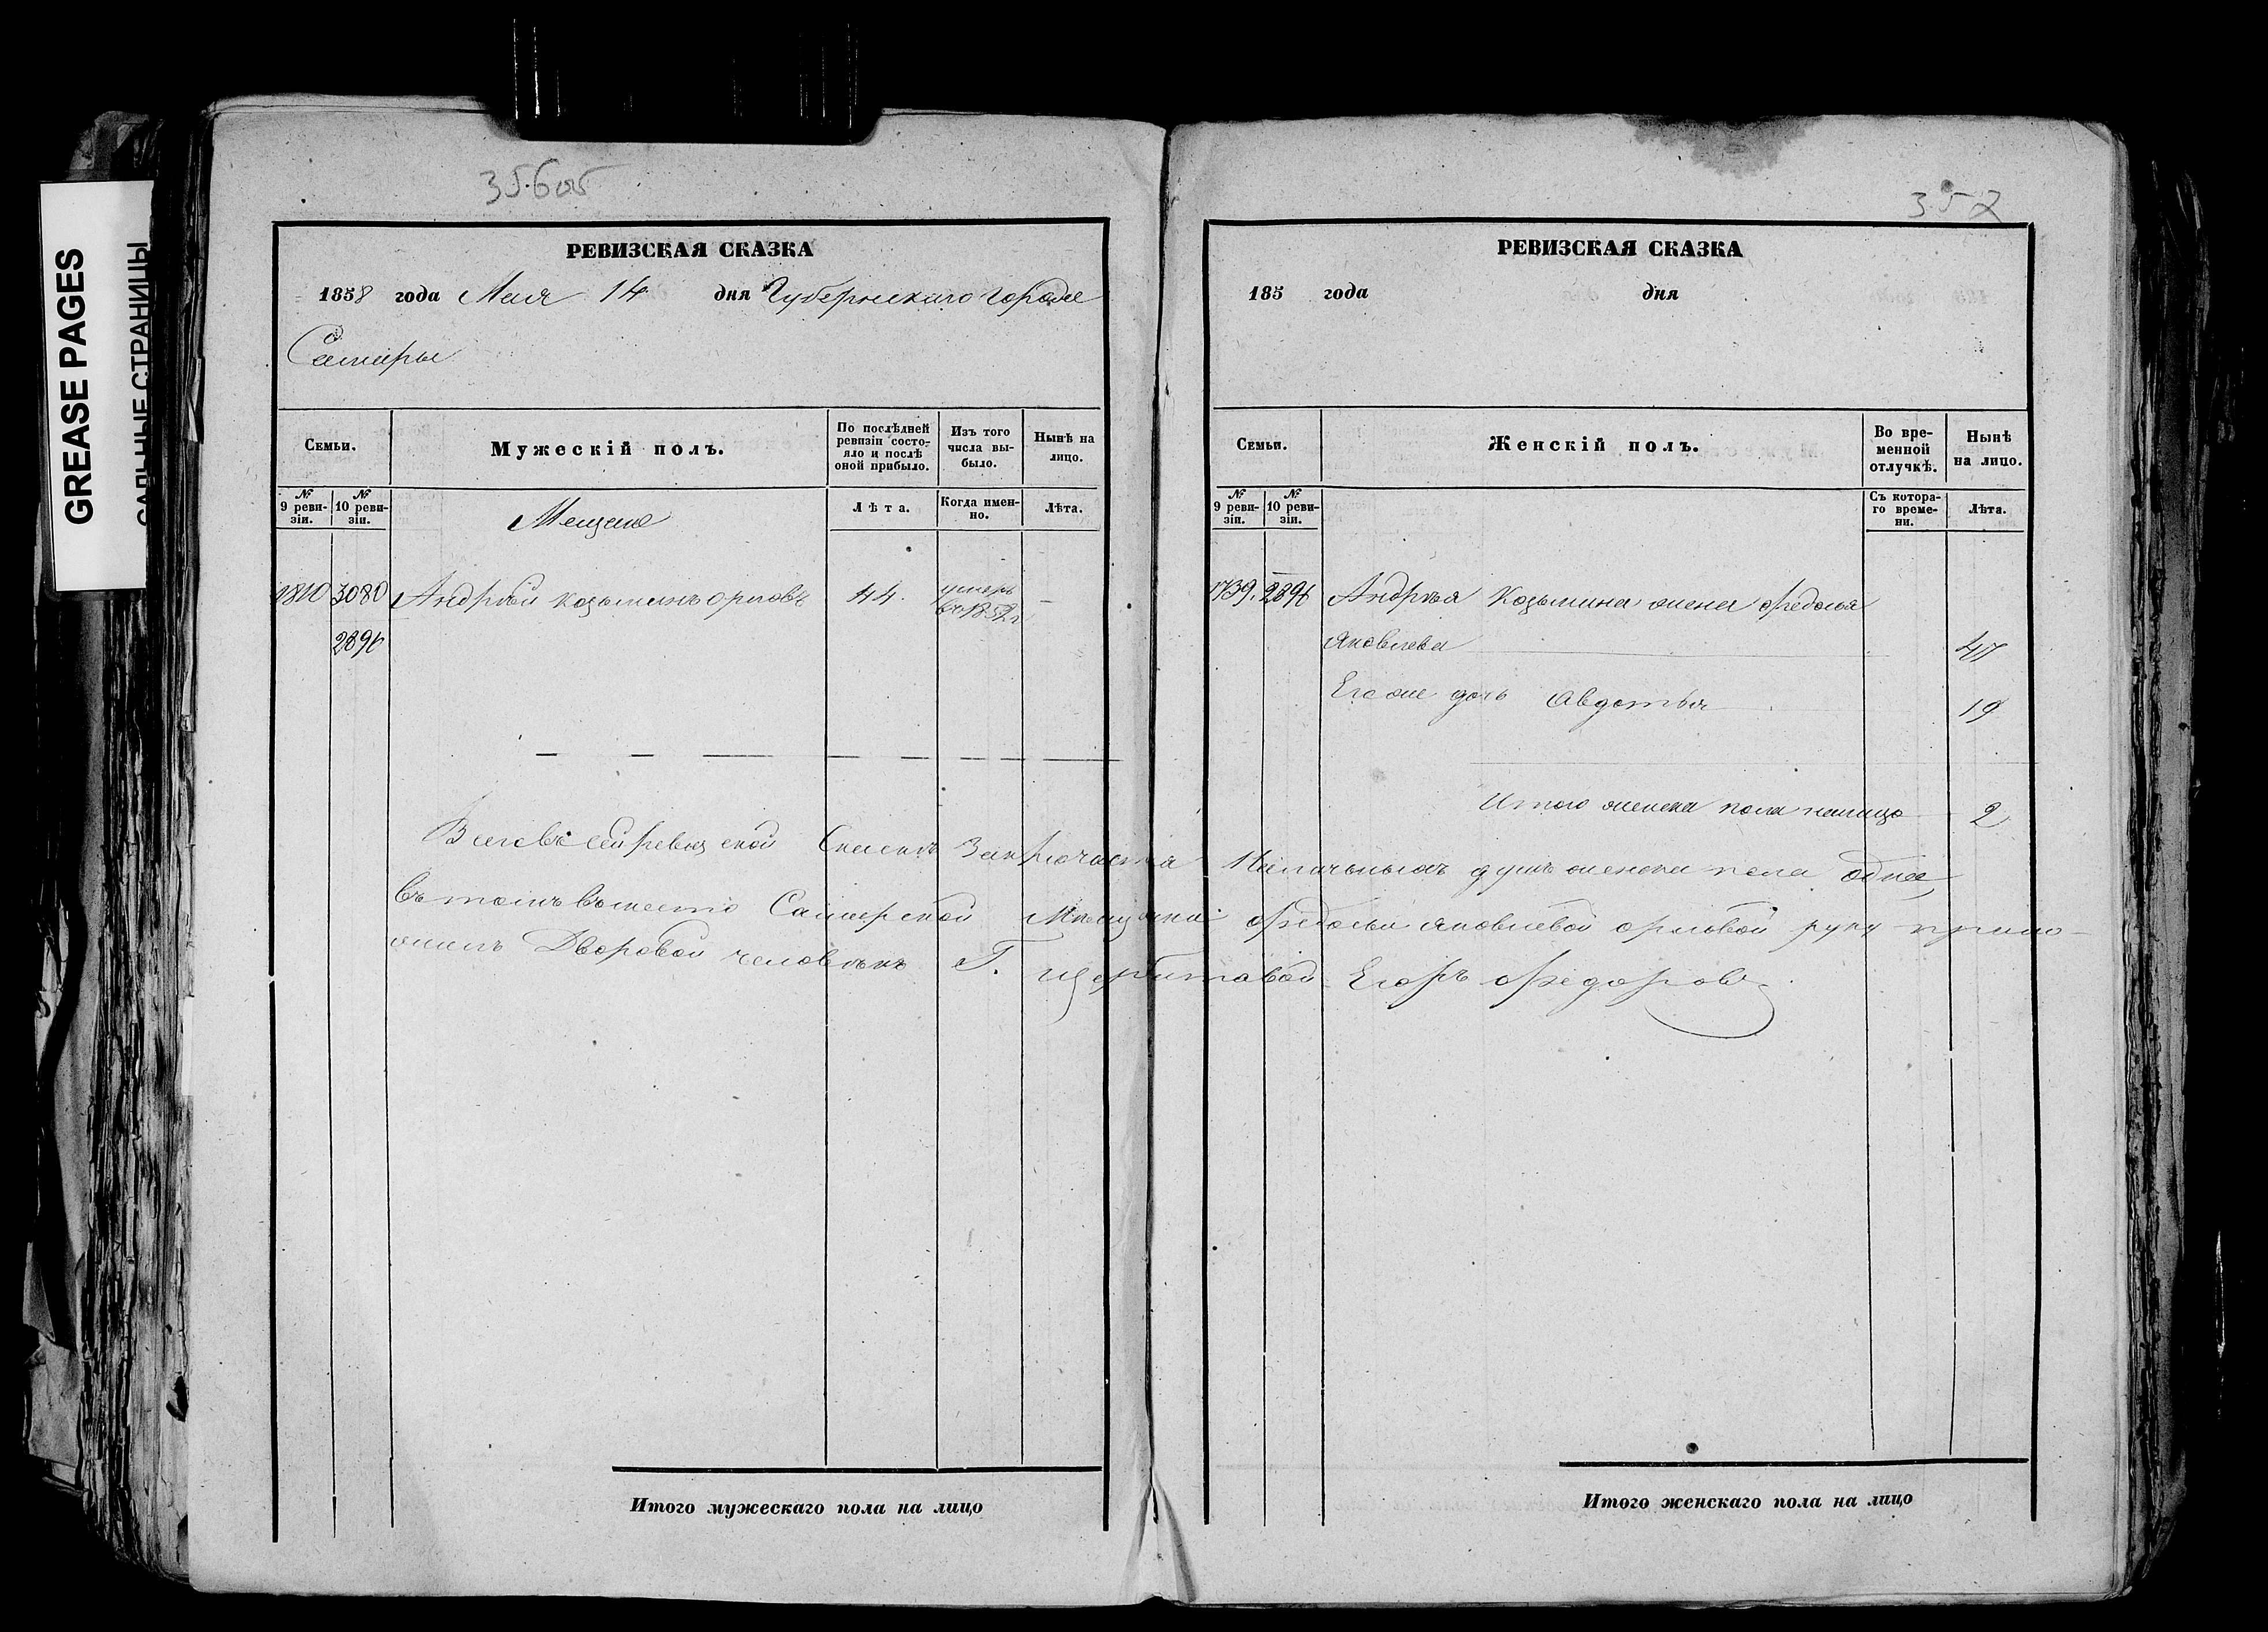 GREASE PAGES
САЛЬНЫЕ СТРАНИЦЫ
356об
РЕВИЗСКАЯ СКАЗКА
1858 года Мая 14 дня Губернскаго города
Самары
Семьи.
Мужескій полъ.
По послѣдней ревизіи состояло и послѣ оной прибыло.
Изъ того числа выбыло.
Нынѣ на лицо.
№ 9 ревизіи.
№ 10 ревизіи.
Мещане
Лѣта.
Когда именно.
Лѣта.
1810 3080 Андрѣй Козьминъ Орловъ 44. умеръ въ 1852 г —
2896
Всего въ сей ревизской Сказкѣ Заключается Наличныхъ душъ женска пола одна,
въ томъ вместо Самарской Мѣщанки Федосьи Яковлевой Орловой руку прило-
жилъ Дворовой человѣкъ Г. Егоръ Федоровъ
Итого мужескаго пола на лицо
357
РЕВИЗСКАЯ СКАЗКА
185 года дня
Семьи.
Женскій полъ.
Во временной отлучкѣ.
Нынѣ на лицо.
№ 9 ревизіи.
№ 10 ревизіи.
Съ котораго времени.
Лѣта.
1739. 2896 Андрѣя Козьмина жена Федосья
Яковлева 47
Его же дочь Авдотья 19
Итого женска пола налицо 2
Итого женскаго пола на лицо